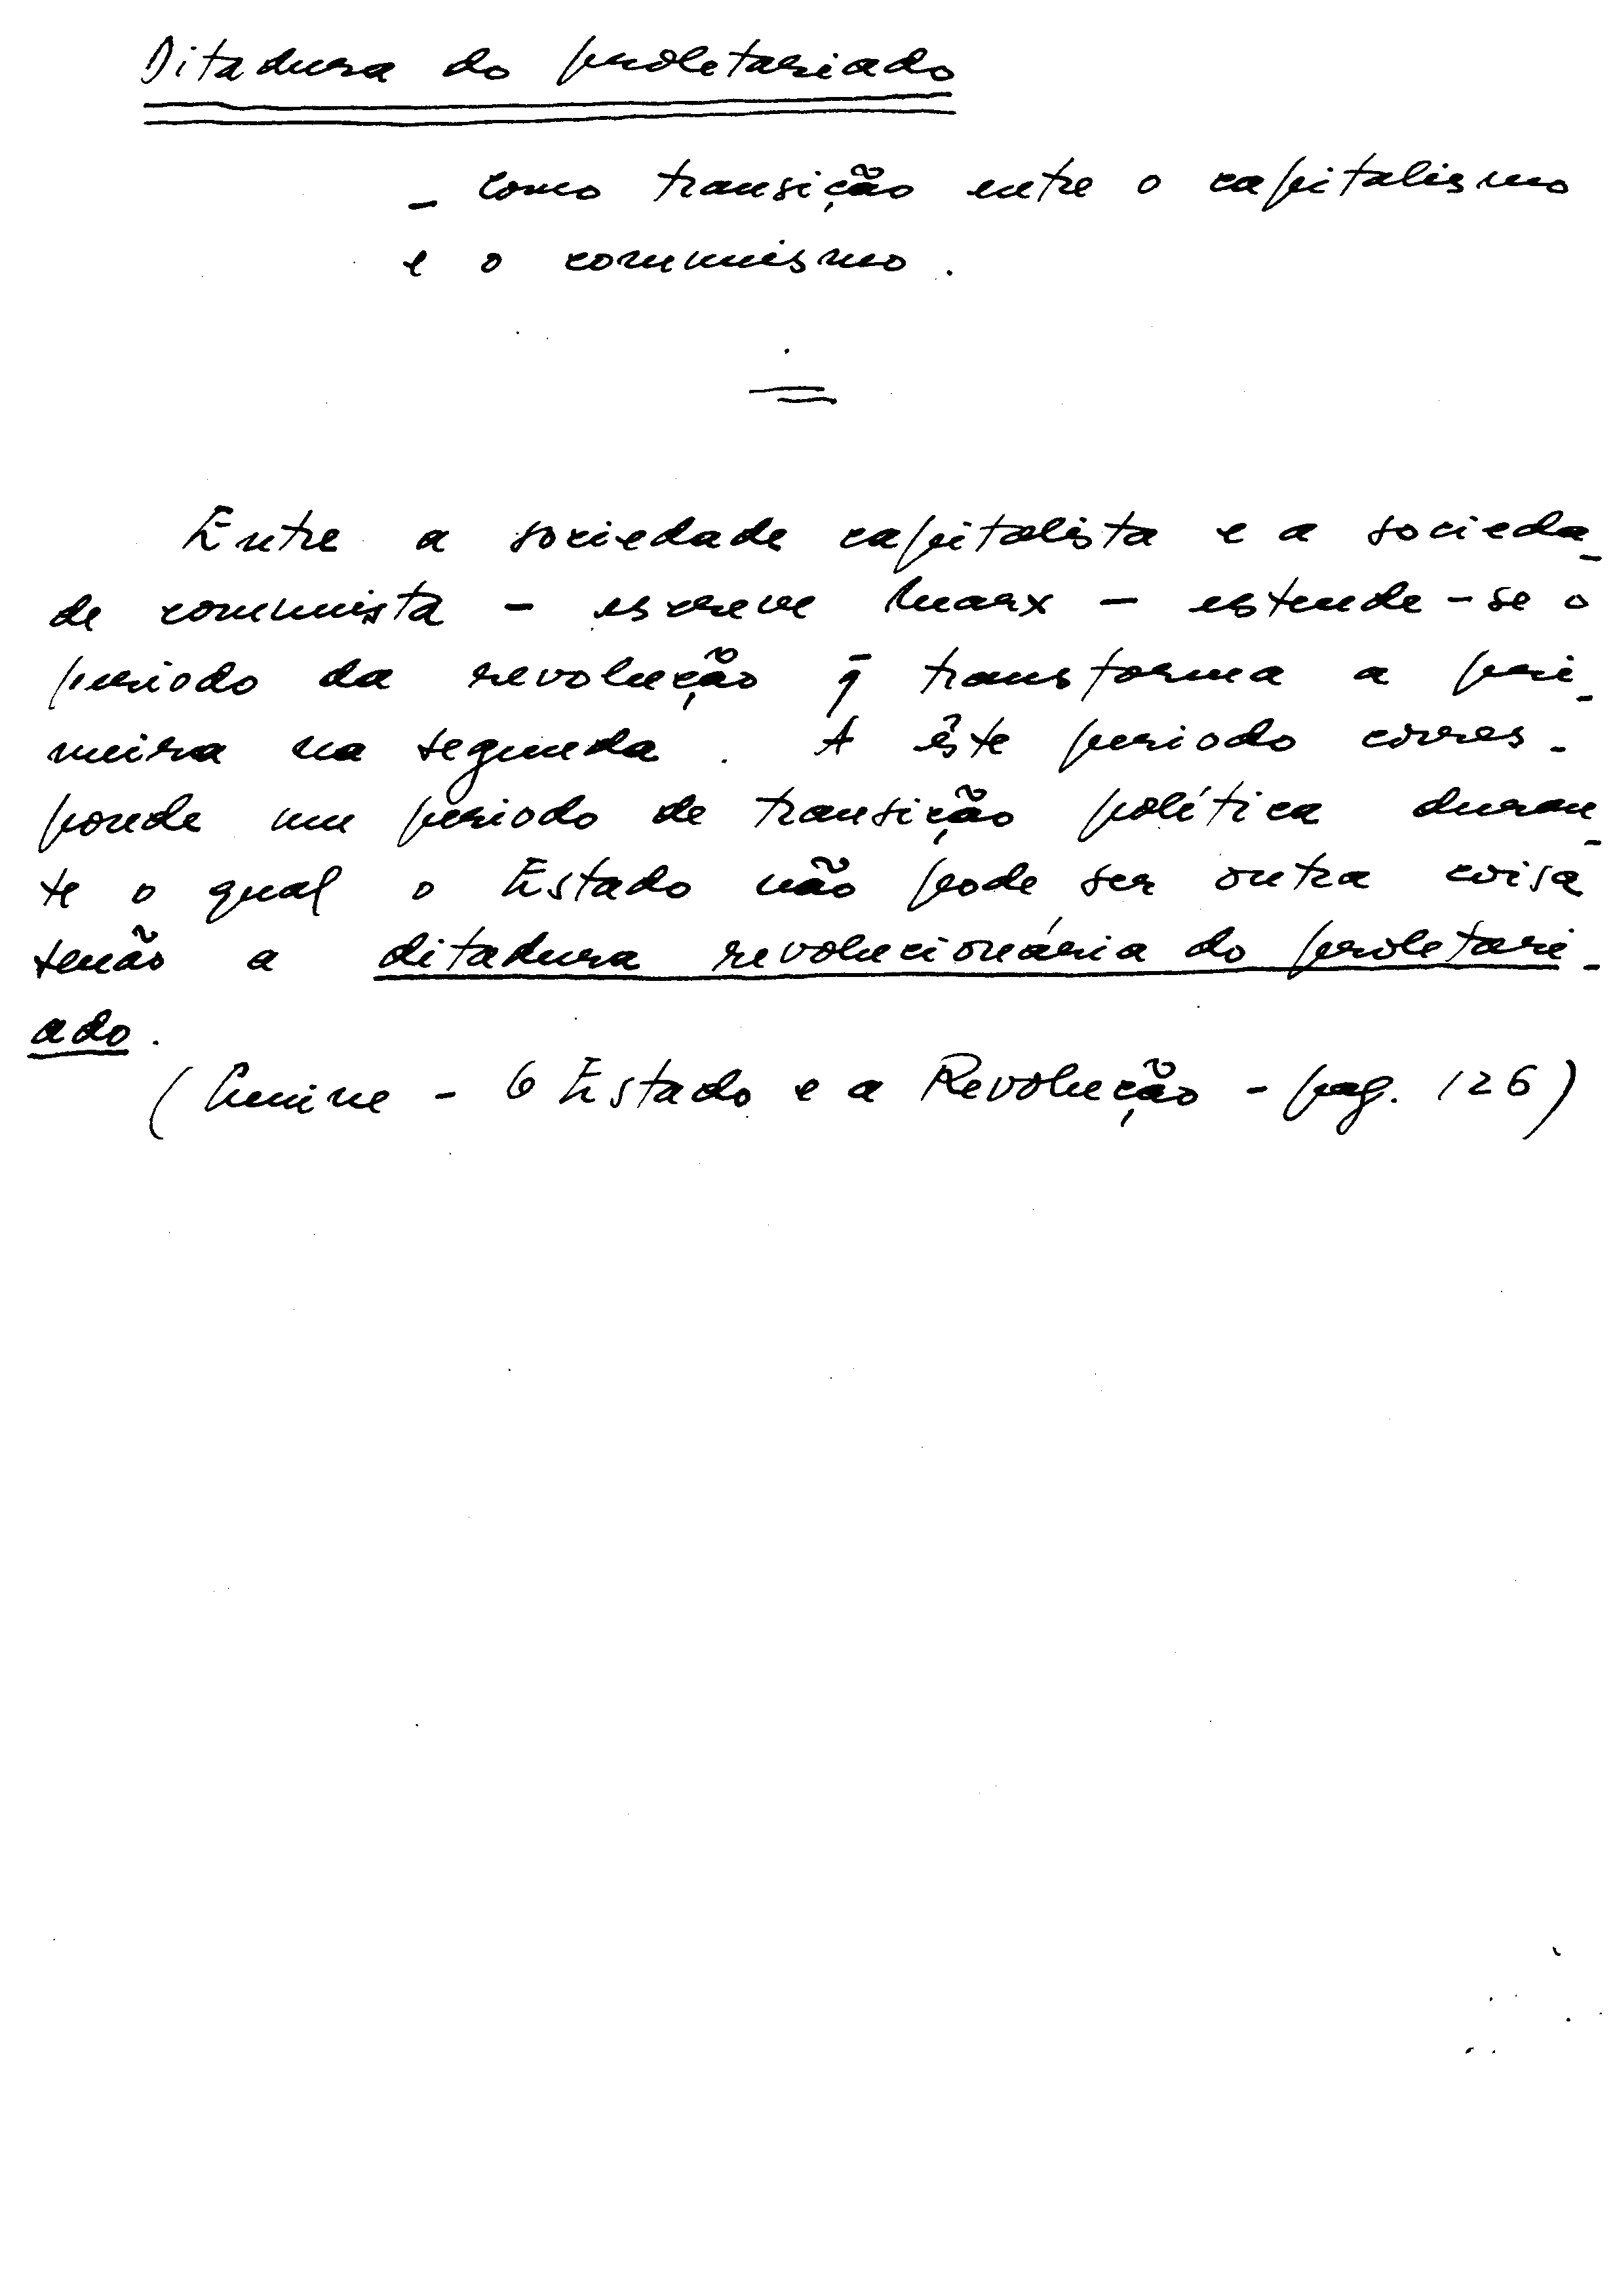 Ditadura do proletariado
- como transição entre o capitalismo
e o comunismo.
Entre a sociedade capitalista e a socieda-
de comunista - escreve Marx - estende-se o
periodo da revolução q̄ transforma a pri-
meira na segunda. A êste periodo corres-
ponde um periodo de transição política duran-
te o qual o Estado não pode ser outra coisa
senão a ditadura revolucionária do proletari-
ado.
(Lenine - O Estado e a Revolução - pag. 126)